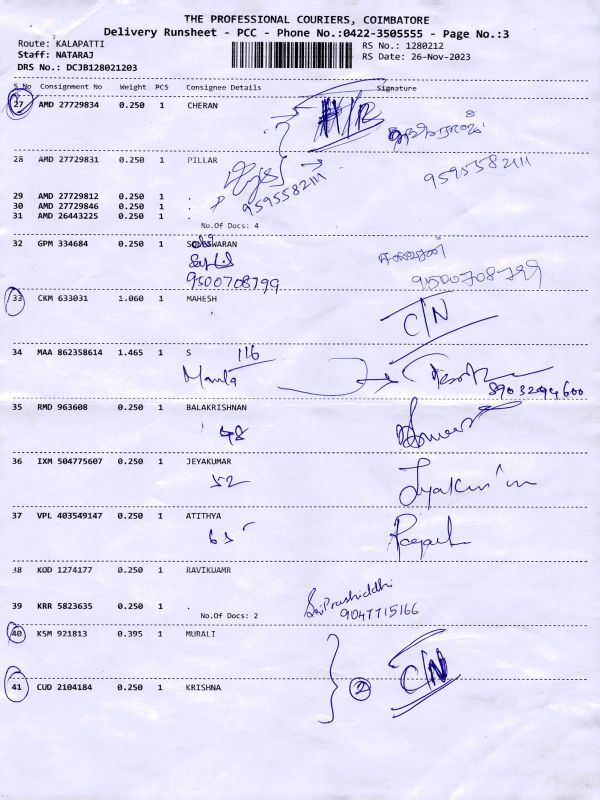 THE PROFESSIONAL COURIERS, COIMBATORE
Delivery Runsheet - PCC - Phone No.:0422-3505555 - Page No.:3
Route: KALAPATTI RS No.: 1280212
Staff: NATARAJ RS Date: 26-Nov-2023
DRS No.: DCJB128021203
S No Consignment No Weight PCS Consignee Details Signature
27 AMD 27729834 0.250 1 CHERAN
28 AMD 27729831 0.250 1 PILLAR
9595582111 9595582111
29 AMD 27729812 0.250 1 .
30 AMD 27729846 0.250 1 .
31 AMD 26443225 0.250 1 .
No.Of Docs: 4
32 GPM 334684 0.250 1
9500708799 9500708799
33 CKM 633031 1.060 1 MAHESH
C/N
34 MAA 862358614 1.465 1 S 116
Mamta
8903294600
35 RMD 963608 0.250 1 BALAKRISHNAN
48
36 IXM 504775607 0.250 1 JEYAKUMAR
52
37 VPL 403549147 0.250 1 ATITHYA
38 KOD 1274177 0.250 1 RAVIKUAMR
39 KRR 5823635 0.250 1 .
No.Of Docs: 2
9047715166
40 KSM 921813 0.395 1 MURALI
2 C/N
41 CUD 2104184 0.250 1 KRISHNA